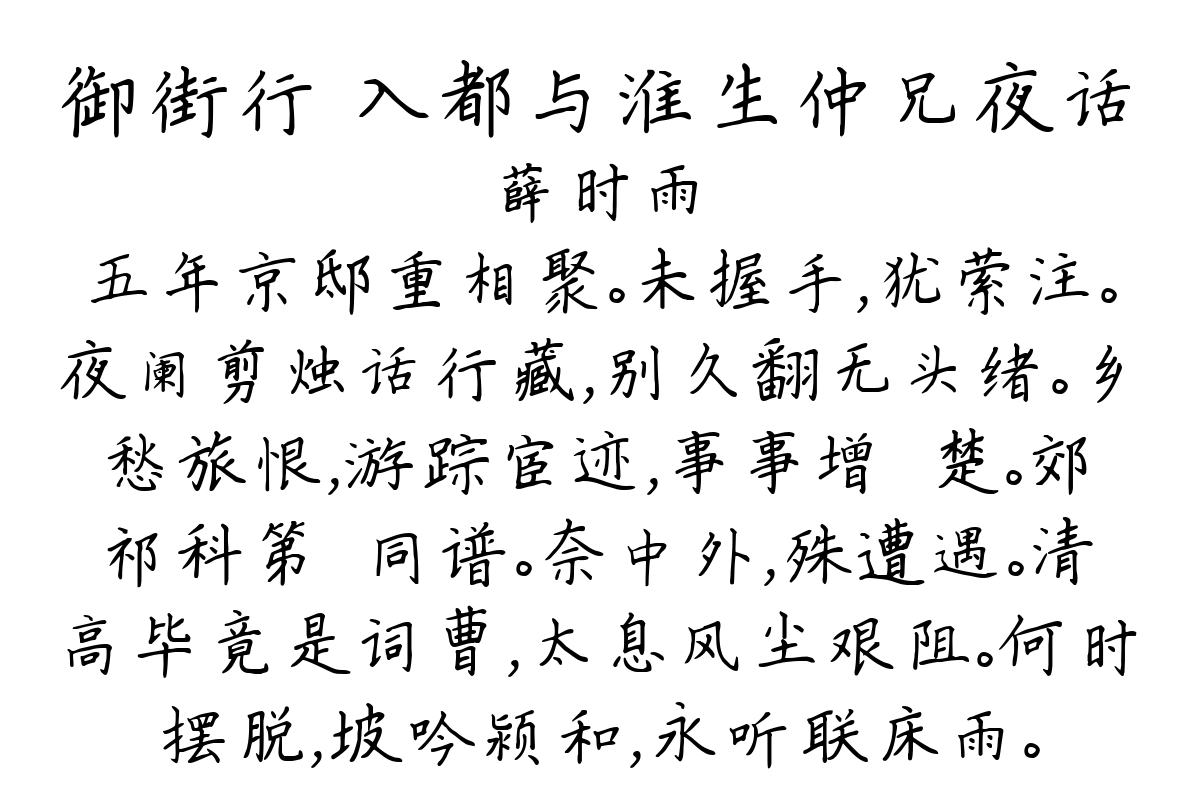 御街行 入都与淮生仲兄夜话
薛时雨
五年京邸重相聚。未握手,犹萦注。
夜阑剪烛话行藏,别久翻无头绪。乡
愁旅恨,游踪宦迹,事事增 楚。郊
祁科第 同谱。奈中外,殊遭遇。清
高毕竟是词曹,太息风尘艰阻。何时
摆脱,坡吟颍和,永听联床雨。